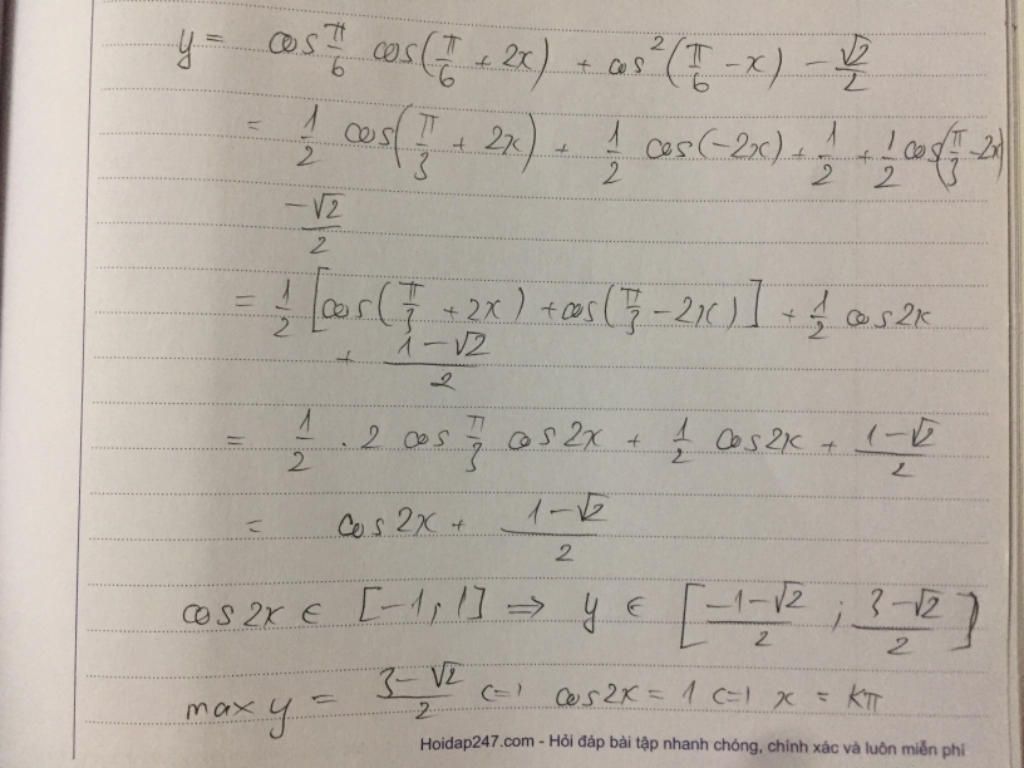 y = cos π/6 cos(π/6 + 2x) + cos²(π/6 - x) - √2/2
= 1/2 cos(π/3 + 2x) + 1/2 cos(-2x) + 1/2 + 1/2 cos(π/3 - 2x)
-√2/2
= 1/2 [cos(π/3 + 2x) + cos(π/3 - 2x)] + 1/2 cos2x
+ (1-√2)/2
= 1/2 . 2 cos π/3 cos2x + 1/2 cos2x + (1-√2)/2
= cos2x + (1-√2)/2
cos2x ∈ [-1, 1] ⇒ y ∈ [(-1-√2)/2 ; (3-√2)/2]
max y = (3-√2)/2 <=> cos2x = 1 <=> x = kπ
Hoidap247.com - Hỏi đáp bài tập nhanh chóng, chính xác và luôn miễn phí